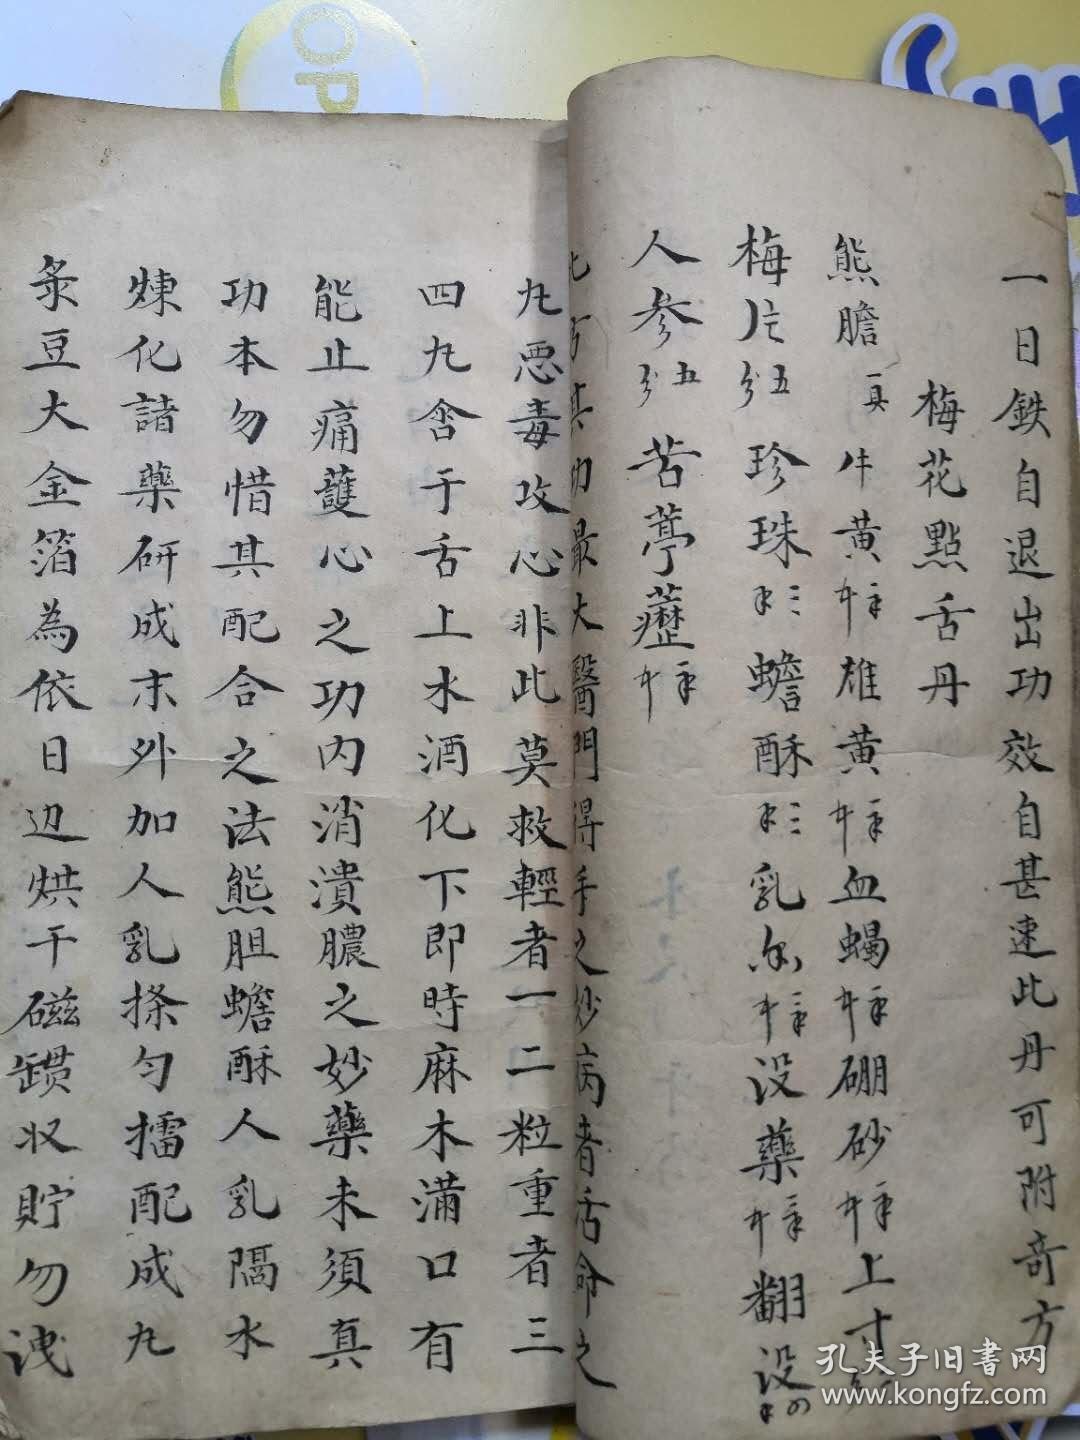 一日鉄自退出功效自甚速此丹可附奇方
梅花點舌丹
熊膽 真 牛黃 雄黃 血蝎 硼砂 上寸
梅片 五分 珍珠 三 蟾酥 三 乳 没藥 翻没
人參 五分 苦葶藶
方其功最大醫門得手之妙病者活命之
九恶毒攻心非此莫救輕者一二粒重者三
四九含于舌上水酒化下即時麻木滿口有
能止痛護心之功内消潰膿之妙藥未須真
功本勿惜其配合之法熊胆蟾酥人乳隔水
煉化諸藥研成末外加人乳搽匀擂配成九
豆大金箔為依日边烘干磁收貯勿洩
OP
孔夫子旧書网
www.kongfz.com